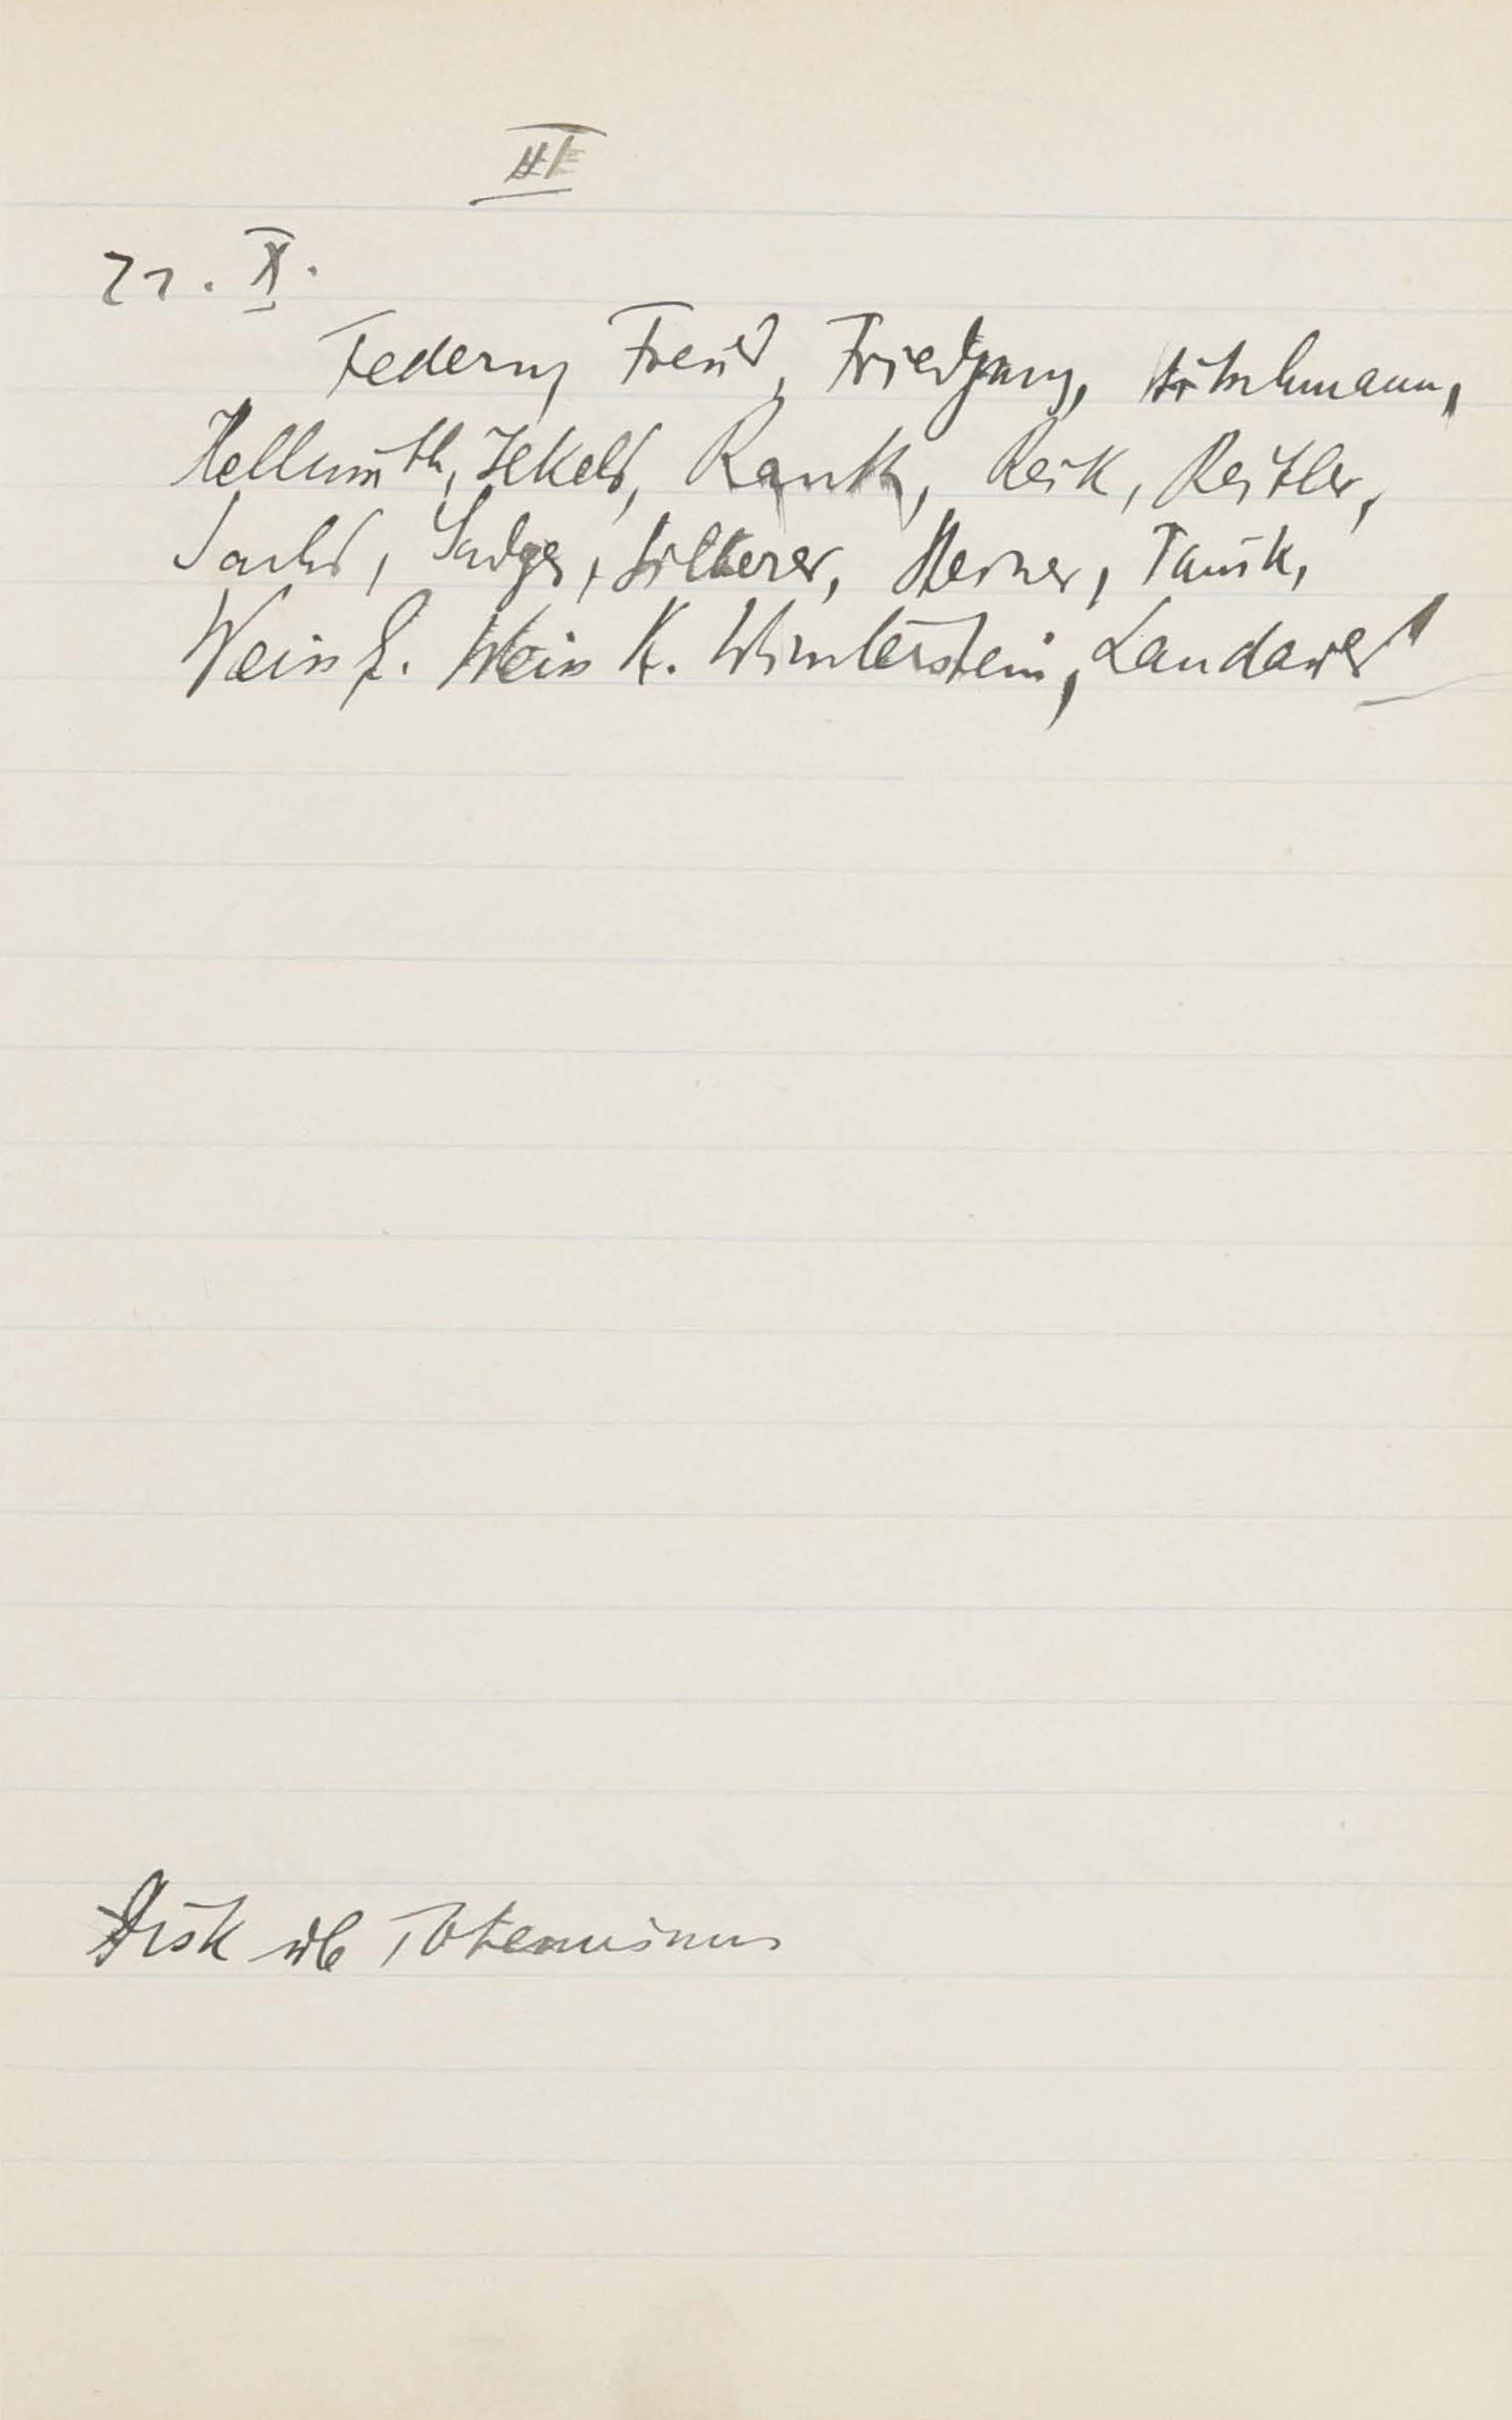 III
21. X.
Federn, Freud, Friedjung, Hitschmann,
Hellmuth, Jekels, Rank, Reik, Reitler,
Sachs, Sadger, Silberer, Steiner, Tausk,
Weiss E. Weiss K. Winterstein, Landauer
Disk üb Totemismus